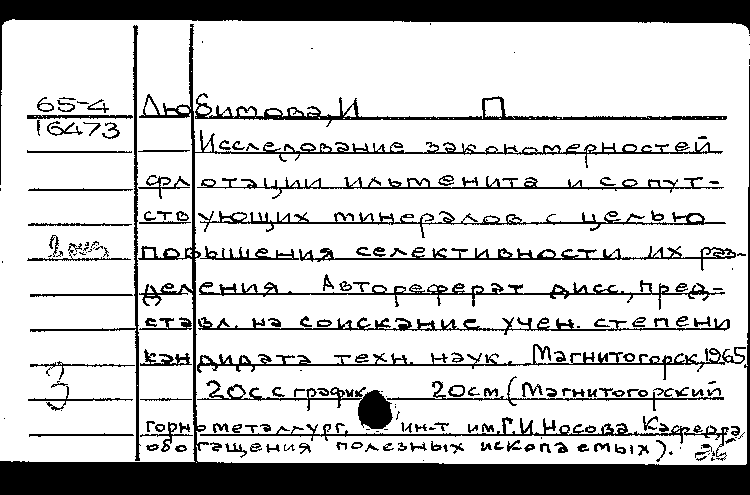 65-4 Любимова, И П
16473
Исследование закономерностей
флотации ильменита и сопут-
ствующих минералов с целью
2 экз повышения селективности их раз-
деления. Автореферат дисс., пред-
ставл. на соискание учен. степени
кандидата техн. наук. Магнитогорск, 1965.
3 20с. с график. 20см. (Магнитогорский
горнометаллург. ин-т им. Г.И. Носова. Кафедра
обогащения полезных ископаемых).